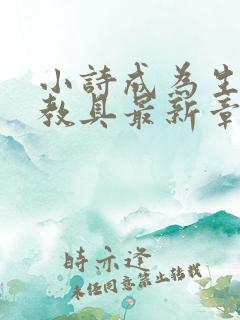 小詩成為生
教具最新章
時亦逐
未经同意禁止转载